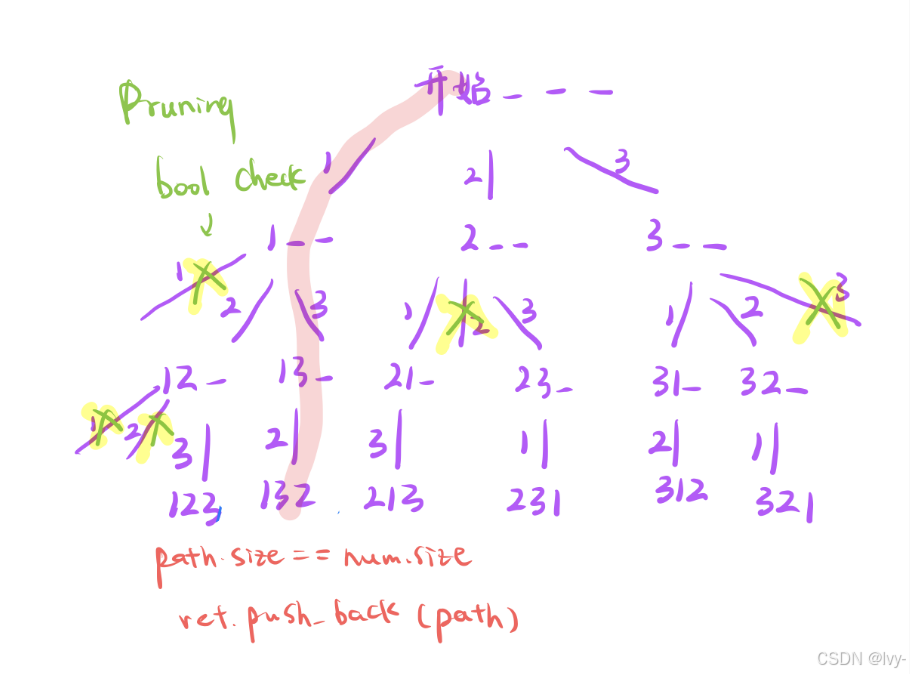 开始_ _ _
Pruning
bool check
1 2 3
1_ _ 2_ _ 3_ _
1 2 3 1 2 3 1 2 3
12_ 13_ 21_ 23_ 31_ 32_
1 2 3 2 3 1 2 1
123 132 213 231 312 321
path.size == num.size
ret.push_back (path)
CSDN @lvy-